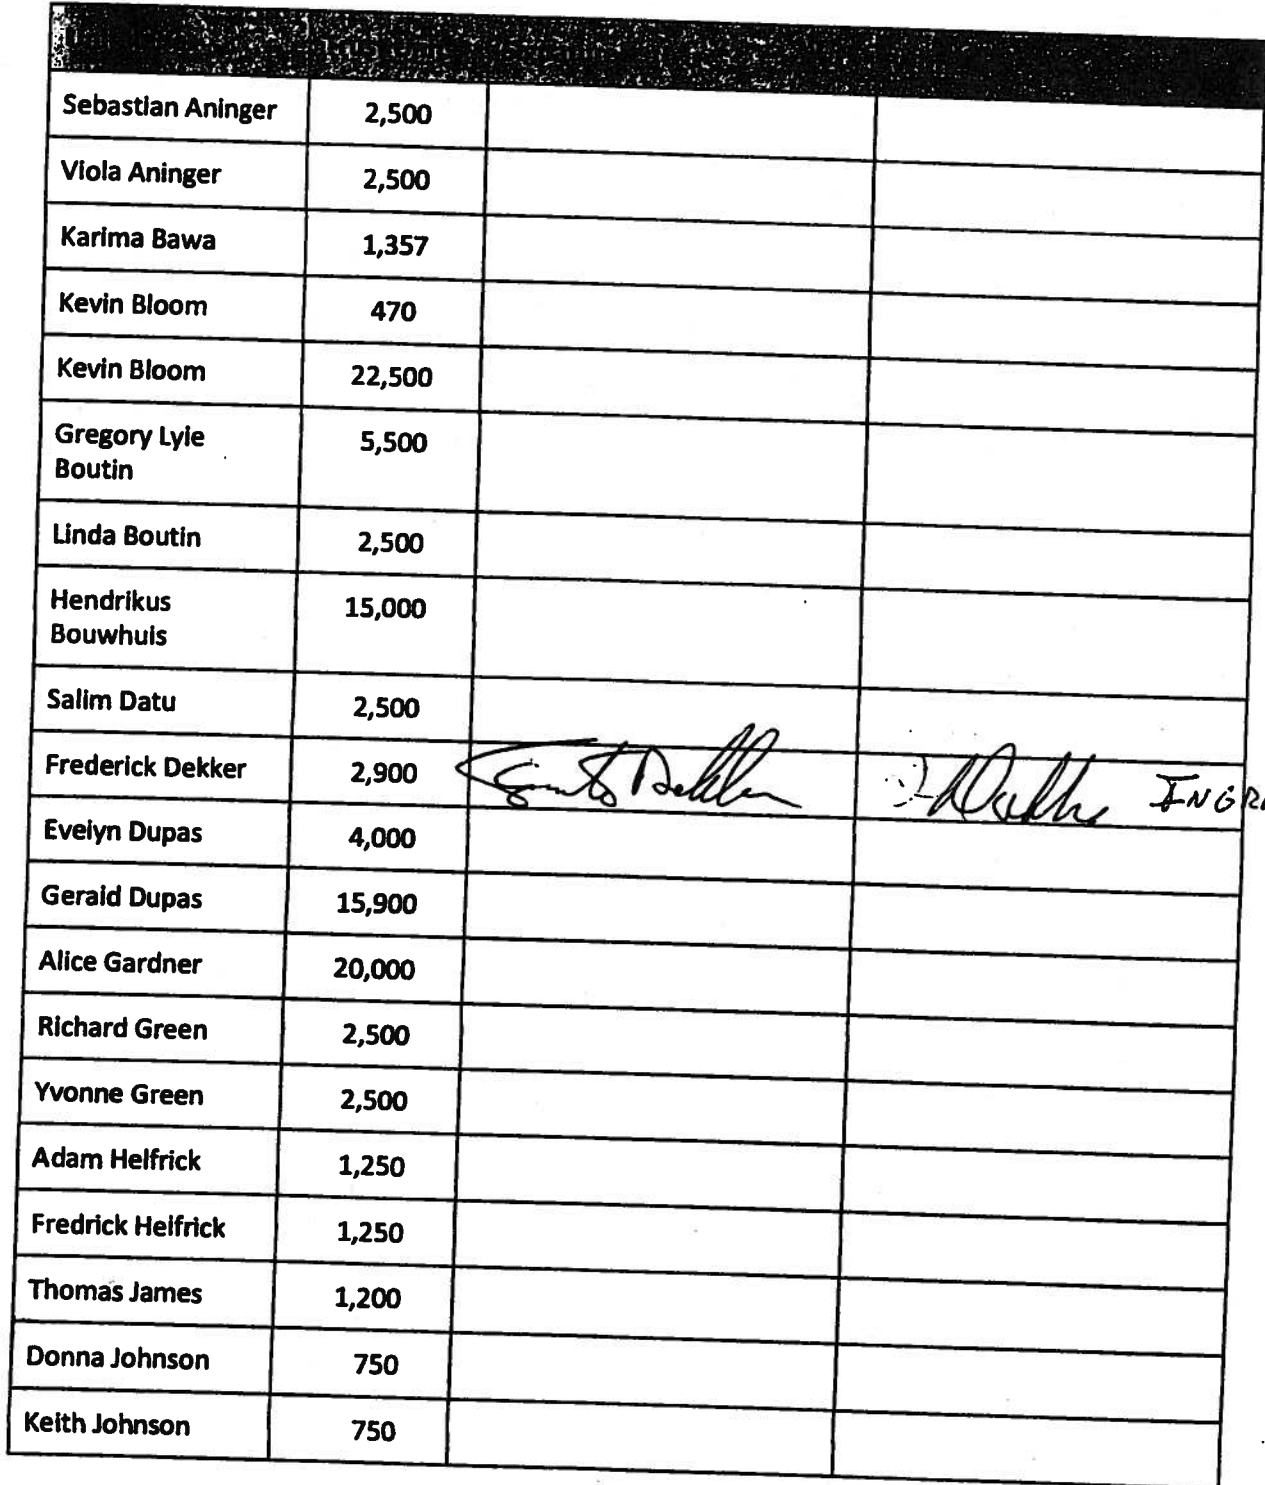 Sebastian Aninger 2,500
Viola Aninger 2,500
Karima Bawa 1,357
Kevin Bloom 470
Kevin Bloom 22,500
Gregory Lyle 5,500
Boutin
Linda Boutin 2,500
Hendrikus 15,000
Bouwhuis
Salim Datu 2,500
Frederick Dekker 2,900 Dekker
Evelyn Dupas 4,000
Gerald Dupas 15,900
Alice Gardner 20,000
Richard Green 2,500
Yvonne Green 2,500
Adam Helfrick 1,250
Fredrick Helfrick 1,250
Thomas James 1,200
Donna Johnson 750
Keith Johnson 750